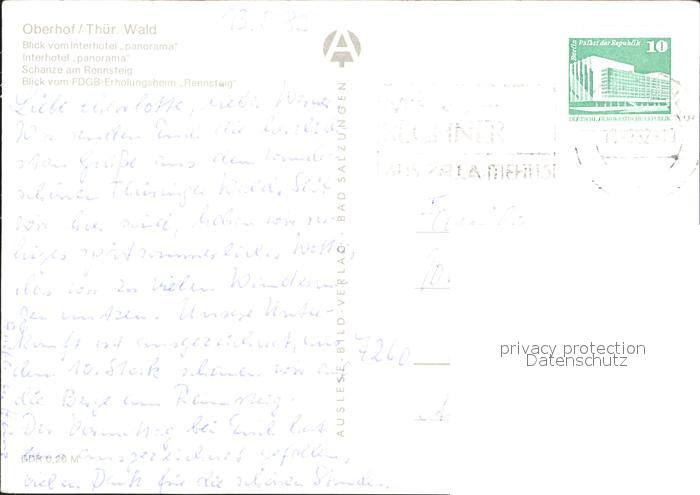 13.9.82
Oberhof / Thür. Wald
Blick vom Interhotel „panorama"
Interhotel „panorama"
Schanze am Rennsteig
Blick vom FDGB-Erholungsheim „Rennsteig"
Liebe Charlotte, lieber Werner
Wir senden Euch die herzlich-
sten Grüße aus dem wunder-
schönen Thüringer Wald. Seit
wir hier sind, haben wir
spätsommerliches Wetter,
das wir zu vielen Wanderun-
gen nutzen. Unsere Unter-
kunft ist ausgezeichnet, aus
dem 10. Stock schauen wir auf
die Berge am Rennsteig.
Der Vormittag bei Euch hat
ausgezeichnet gefallen,
vielen Dank für die schönen Stunden.
DDR 0,20 M
AUSLESE-BILD-VERLAG · BAD SALZUNGEN
A
Berlin Palast der Republik
10
DEUTSCHE DEMOKRATISCHE REPUBLIK
RECHNER
AUS ZELLA MEHLIS
Familie
7260
privacy protection
Datenschutz